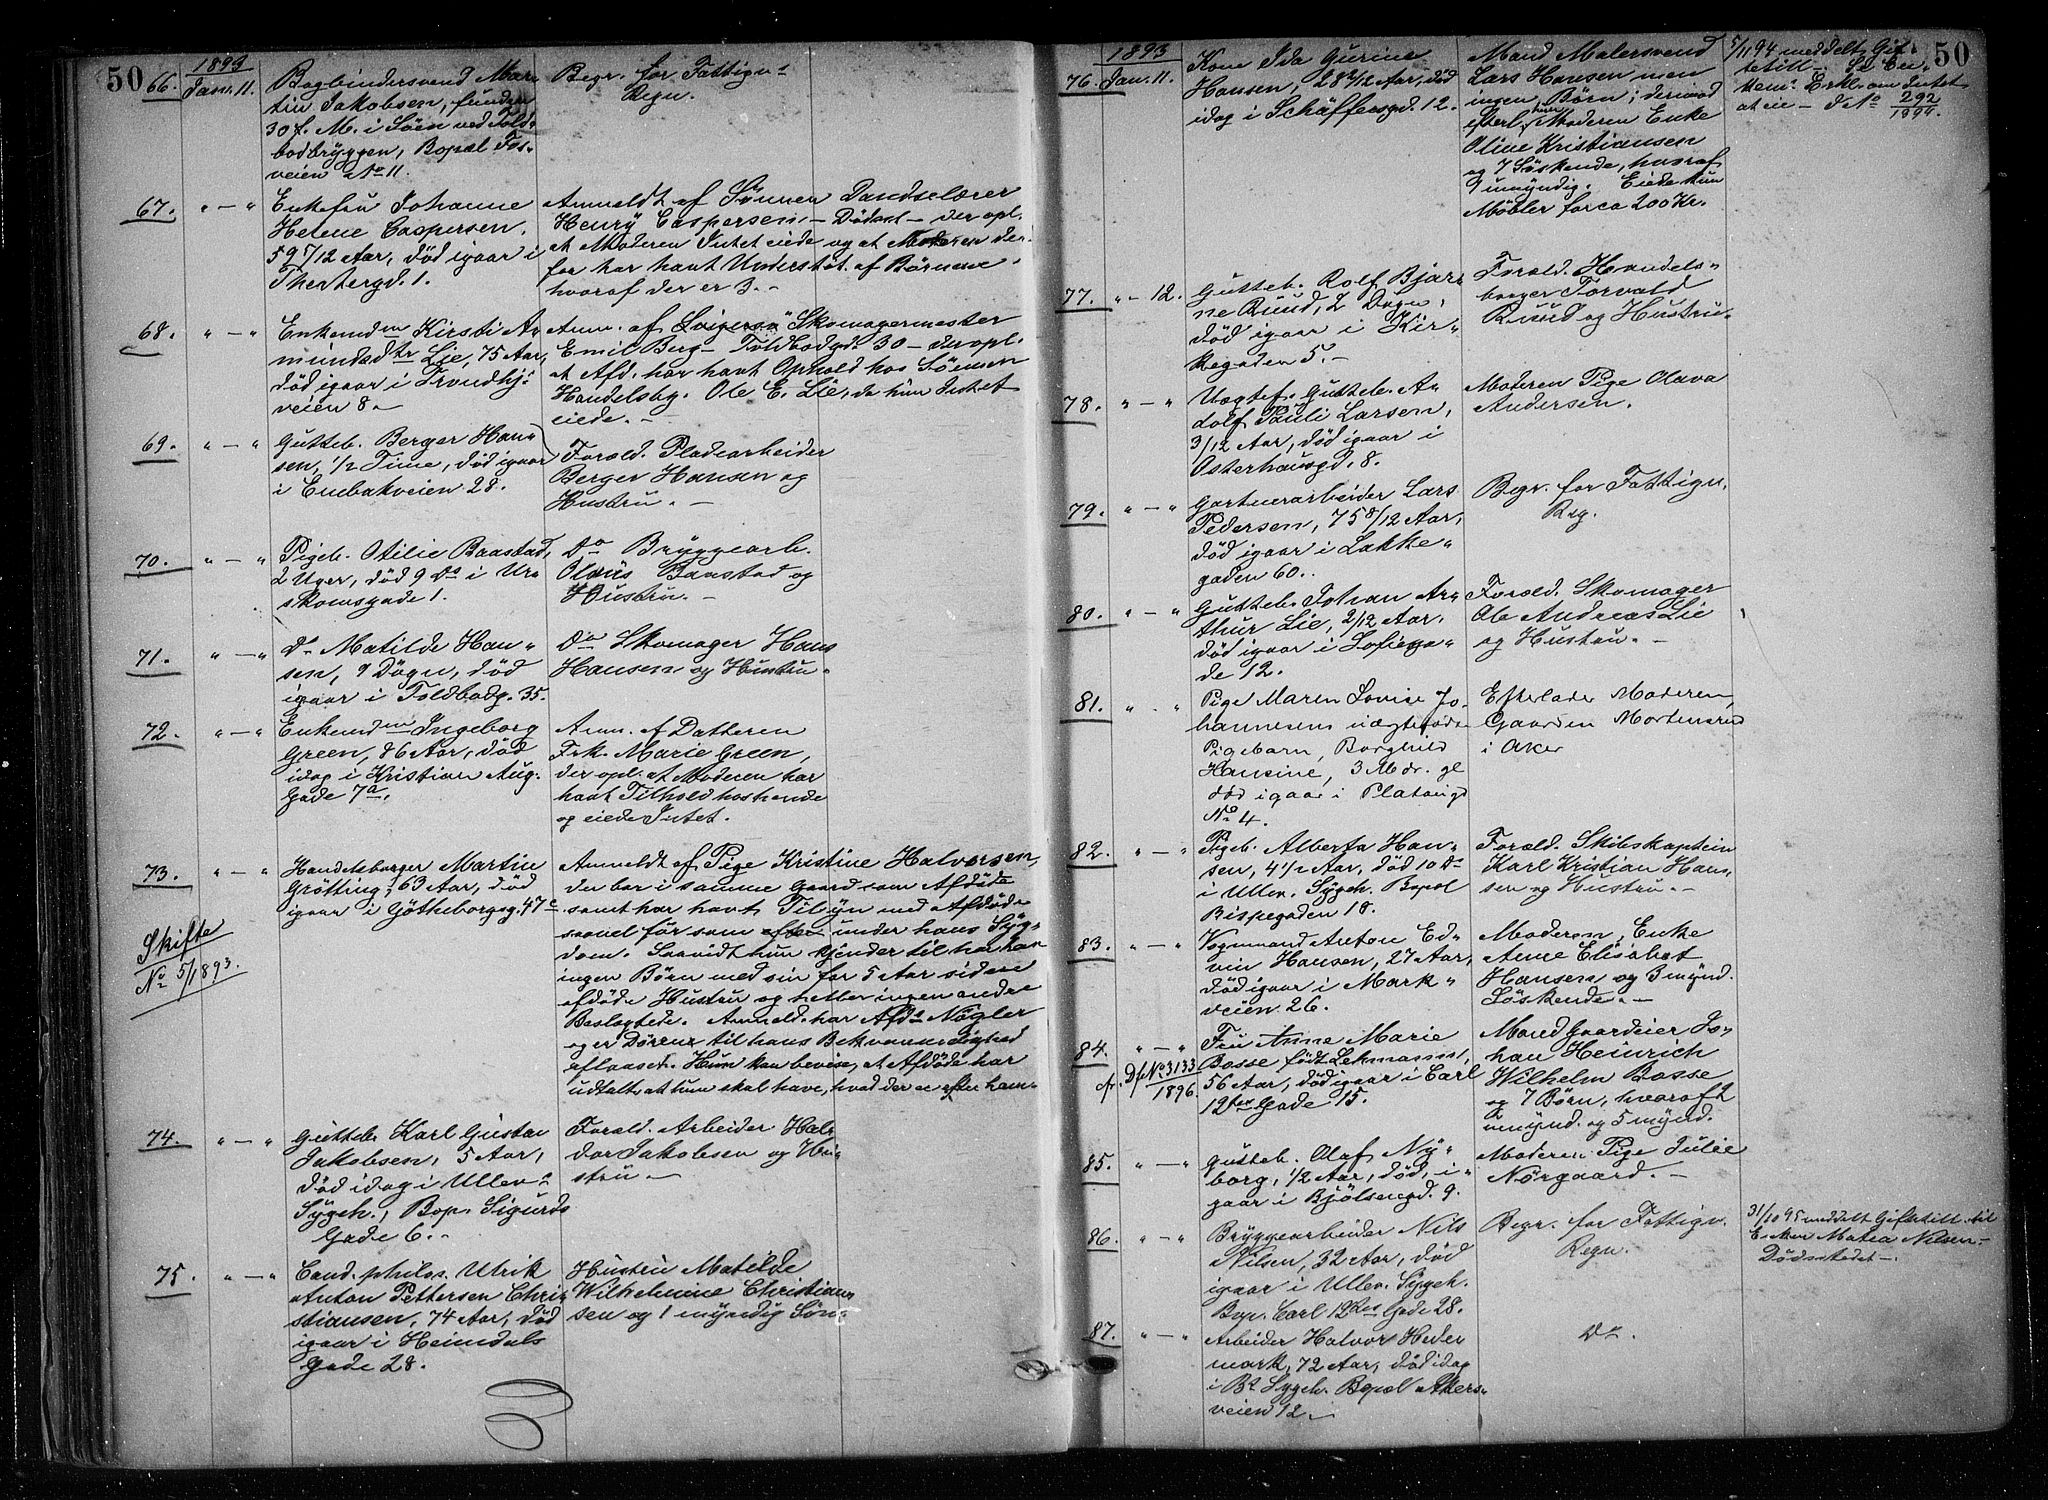 50
1893
66. Jan. 11. Bogbindersvend Mar-
tin Jakobsen, funden
30 f. M. i Søen ved Told-
bodbryggen, Bopæl Fos-
veien No 11.
Begr. for Fattigv.s
Regn.
67. " — " Enkefru Johanne
Helene Caspersen,
59 7/12 Aar, død igaar i
gd. 1.
Anmeldt af Sønnen Dandselærer
Henry Caspersen — Dødsst. — der opl.
at Moderen Intet eiede og at Moderen der-
for har havt Understøt. af Børnene
hvoraf der er 3. —
68. " — " Enkemdm Kirsti A-
mundsdtr Lie, 75 Aar,
død igaar i Trondhj.
veien 8. —
Anm. af Svigersø. Skomagermester
Emil Berg — Toldbodgd. 30 — der opl.
at Afd. har havt Ophold hos Sønnen
Handelsbg. Ole E. Lie, da hun Intet
eiede. —
69. " — " Gutteb. Berger Han-
sen, 1/2 Time, død igaar
i Enebakveien 28.
Foræld. Pladearbeider
Berger Hansen og
Hustru. —
70. " — " Pigeb. Otilie Baastad,
2 Uger, død 9 Ds i Ura-
skomsgade 1.
Do Bryggearb.
Olaus Baastad og
Hustru. —
71. " — " Do Matilde Han-
sen, 9 Døgn, død
igaar i Toldbodg. 35.
Do Skomager Hans
Hansen og Hustru.
72. " — " Enkemdm Ingeborg
Green, 86 Aar, død
idag i Kristian Aug.
Gade 7a.
Anm. af Datteren
Frk. Marie Green,
der opl. at Moderen har
havt Tilhold hos hende
og eiede Intet.
73. " — " Handelsborger Martin
Grötting, 63 Aar, død
igaar i Götheborgsg. 47c
Skifte
No 5/1893.
Anmeldt af Pige Kristine Halvorsen,
der bor i samme Gaard som Afdøde
samt har havt Tilsyn med Afdøde
saavel før som efter under hans Syg-
dom. Saavidt hun kjender til har han
ingen Børn med sin for 5 Aar siden
afdøde Hustru og heller ingen andre
Beslægtede. Anmeld. har Afd.s Nøgler
og er Dørene til hans Bekvemmelighed
aflaaset. Hun kan bevise, at Afdøde har
udtalt, at hun skal have, hvad der er efter ham.
74. " — " Gutteb. Karl Gustav
Jakobsen, 5 Aar,
død idag i Ullev.
Sygeh., Bop. Sigurds
Gade 6. —
Foræld. Arbeider Hal-
dor Jakobsen og Hu-
stru —
75. " — " Cand. philos. Ulrik
Anton Pettersen Chri-
stiansen, 74 Aar, død
igaar i Heimdals
Gade 28.
Hustru Matilde
Wilhelmine Christian-
sen og 1 myndig Søn.
50
1893
76. Jan. 11. Kone Ida Gurine
Hansen, 28 2/12 Aar, død
idag i Schäffersgd. 12.
Mand Malersvend
Lars Hansen men
ingen Børn; derimod
efterl. hun Moderen Enke
Olive Kristiansen
og 7 Søskende, hvoraf
umyndig. Eiede kun
Møbler for ca 200 Kr.
7/11 94 meddelt Gif-
tetill. —
Erkl. om Intet
at eie — d. No 292/1894.
77. " — 12. Gutteb. Rolf Bjar-
ne Ruud, 2 Døgn,
død igaar i Kir-
kegaden 5. —
Foræld. Handels-
borger Torvald
Ruud og Hustru.
78. " — " Uægtef. Gutteb. A-
dolf Pauli Larsen,
3/12 Aar, død igaar i
Osterhausgd. 8.
Moderen Pige Olava
Andersen.
79. " — " Gartnerarbeider Lars
Pedersen, 75 8/12 Aar,
død igaar i Lakke-
gaden 60.
Begr. for Fattigv.
Reg.
80. " — " Gutteb. Johan Ar-
thur Lie, 2/12 Aar,
død igaar i Sofiega-
de 12.
Foræld. Skomager
Ole Andreas Lie
og Hustru. —
81. " - " Pige Maren Lovise Jo-
hannesens uægtefødte
Pigebarn, Borghild
Hansine, 3 Mdr. gl
død igaar i Platousgd
No 4.
Efterlader Moderen,
Gaarden Mortensrud
i Aker
82. " — " Pigeb. Alberta Han-
sen, 4 1/2 Aar, død 10 Ds
i Ullev. Sygeh. Bopæl
Bispegaden 18.
Foræld. Skibskaptein
Karl Kristian Han-
sen og Hustru. —
83. " — " Vognmand Anton Ed-
vin Hansen, 27 Aar,
død igaar i Mark-
veien 26.
Moderen, Enke
Anne Elisabet
Hansen og 3 mynd.
Søskende. —
84. " — " Fru Anne Marie
Bosse født Lekmann,
56 Aar, død igaar i Carl
12tes Gade 15.
cfr. Df No 3133/1896.
Mand Gaardeier Jo-
han Heinrich
Wilhelm Bosse
og 7 Børn, hvoraf 2
umynd. og 5 mynd.
85. " — " Gutteb. Olaf Ny-
borg, 1/2 Aar, død i-
gaar i Bjölsengd. 9.
Moderen Pige Julie
Nørgaard. —
86. " — " Bryggearbeider Nils
Nilsen, 32 Aar, død
igaar i Ullev. Sygeh.
Bop. Carl 12tes Gade 28.
Begr. for Fattigv.
Regn.
31/10 95 meddelt Giftetill. til
Enken Matea Nilsen —
Dødsstedet —.
87. " — " Arbeider Halvor Heder-
mark, 72 Aar, død idag
i B. Sygeh. Bopæl Akers-
veien 12. —
Do.